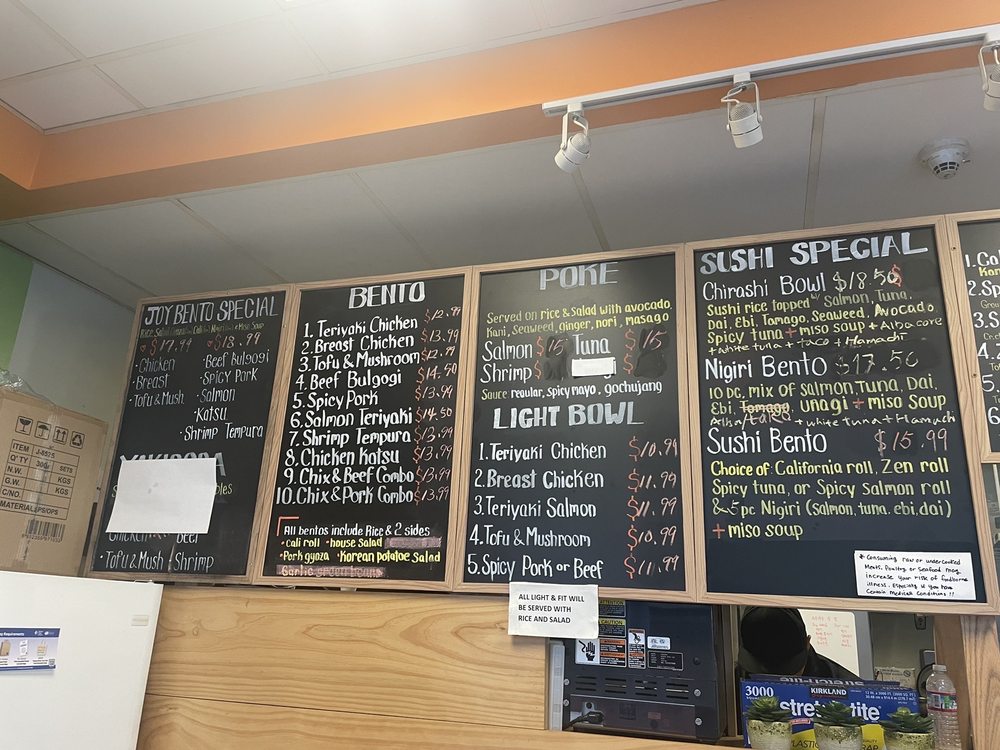 JOY BENTO SPECIAL
$17.99 $18.99
•Chicken •Beef Bulgogi
•Breast •Spicy Pork
•Tofu & Mush •Salmon
•Katsu
•Shrimp Tempura
Chicken Beef
Tofu & Mush Shrimp
BENTO
1. Teriyaki Chicken $12.99
2. Breast Chicken $13.99
3. Tofu & Mushroom $12.99
4. Beef Bulgogi $14.50
5. Spicy Pork $13.99
6. Salmon Teriyaki $14.50
7. Shrimp Tempura $13.99
8. Chicken Katsu $13.99
9. Chix & Beef Combo $13.99
10. Chix & Pork Combo $13.99
All bentos include Rice & 2 sides
•Cali roll •house Salad
•Pork gyoza •Korean potatoe Salad
POKE
Served on rice & Salad with avocado
Kani, Seaweed, ginger, nori, masago
Salmon $15 Tuna $15
Shrimp $
Sauce regular, spicy mayo, gochujang
LIGHT BOWL
1. Teriyaki Chicken $10.99
2. Breast Chicken $11.99
3. Teriyaki Salmon $11.99
4. Tofu & Mushroom $10.99
5. Spicy Pork or Beef $11.99
ALL LIGHT & FIT WILL
BE SERVED WITH
RICE AND SALAD
SUSHI SPECIAL
Chirashi Bowl $18.50
Sushi rice topped w/ Salmon, Tuna,
Dai, Ebi, Tamago, Seaweed, Avocado
Spicy tuna + miso soup + Albacore
+ white tuna + taco + Hamachi
Nigiri Bento $17.50
10 pc, mix of salmon, Tuna, Dai,
Ebi, Tamago, unagi + miso soup
Alba/tako + white Tuna + Hamachi
Sushi Bento $15.99
Choice of: California roll, Zen roll
Spicy tuna, or Spicy Salmon roll
& 5 pc Nigiri (Salmon, tuna, ebi, dai)
+ miso soup
* Consuming raw or undercooked
Meats, Poultry or Seafood may
increase your risk of foodborne
illness. Especially if you have
Certain Medical Conditions !!
ITEM J-8875
Q'TY 300/ SETS
N.W. KGS
G.W. KGS
C/NO.
MATERIAL: PS/OPS
3000
KIRKLAND